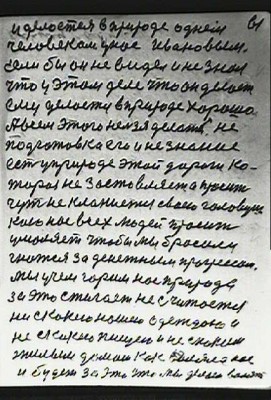 61
и делается в природе одним
человеком у нас Ивановым.
если бы он не видел и не знал
что у этом деле что он делает
ему делается в природе хорошо
А всем этого нельзя делать, не
подготовка его и не знание
есть у природе этой дороги ко-
торая не заставляет а просит
чуть не кланяется своею головушк
нас всех людей просит
умоляет чтобы мы бросили
гнатся за денежным прогрессом.
мы у чем горим нас природа
за это стегает не считается
ни с какою нашею одеждою и
не с какою пищею и не с каким
жилым домом как
и будет за это что мы